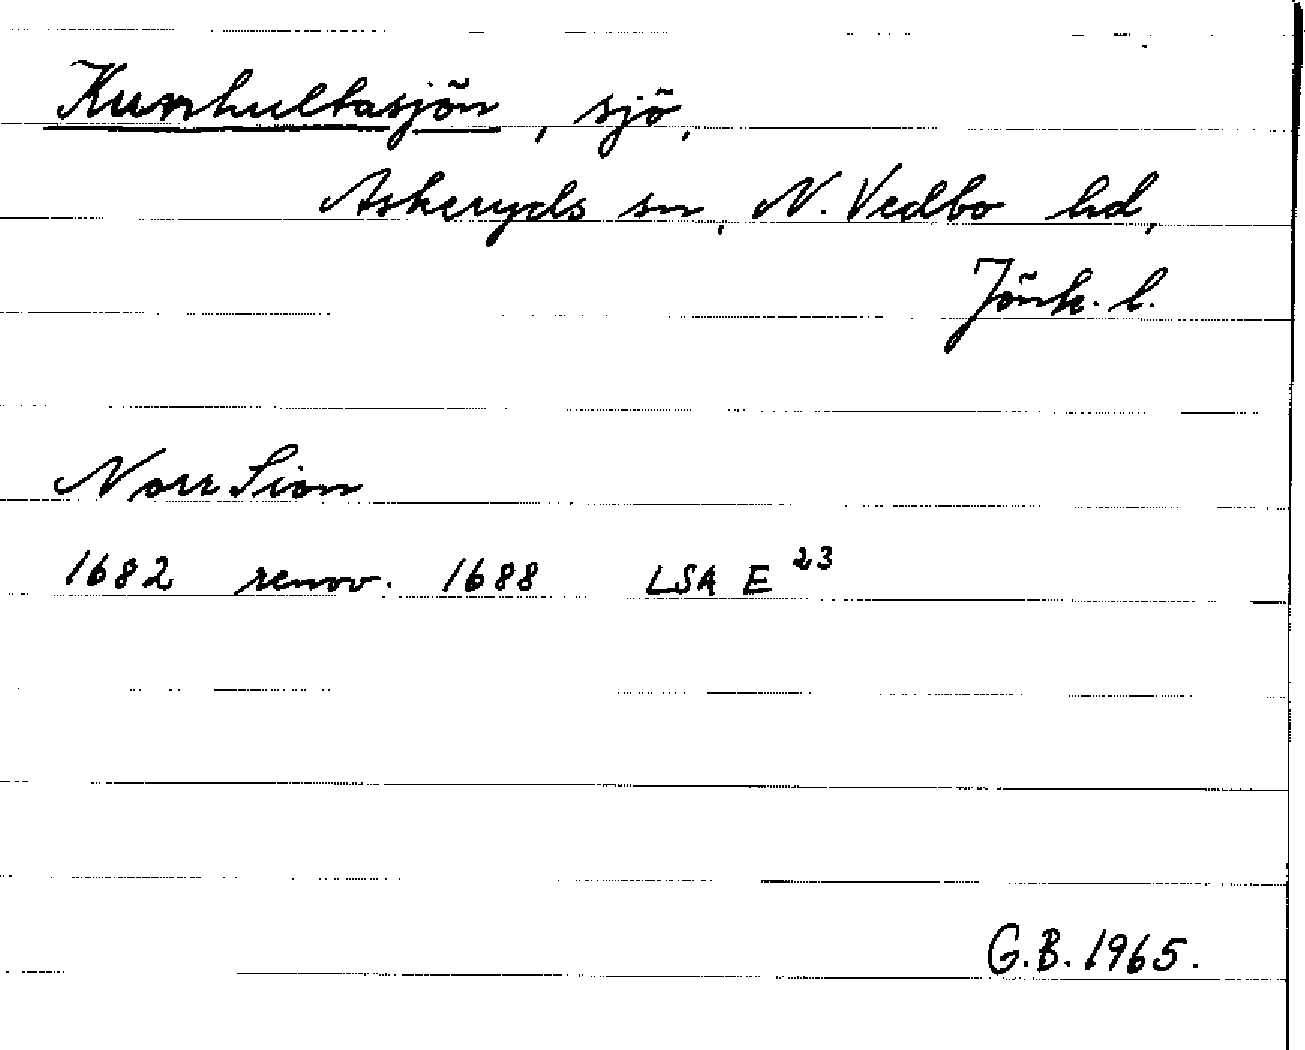 Kunhultasjön, sjö,
Askeryds sn, N. Vedbo hd,
Jönk. l.
Norr Sion
1682 renov. 1688 LSA E 23
G.B. 1965.